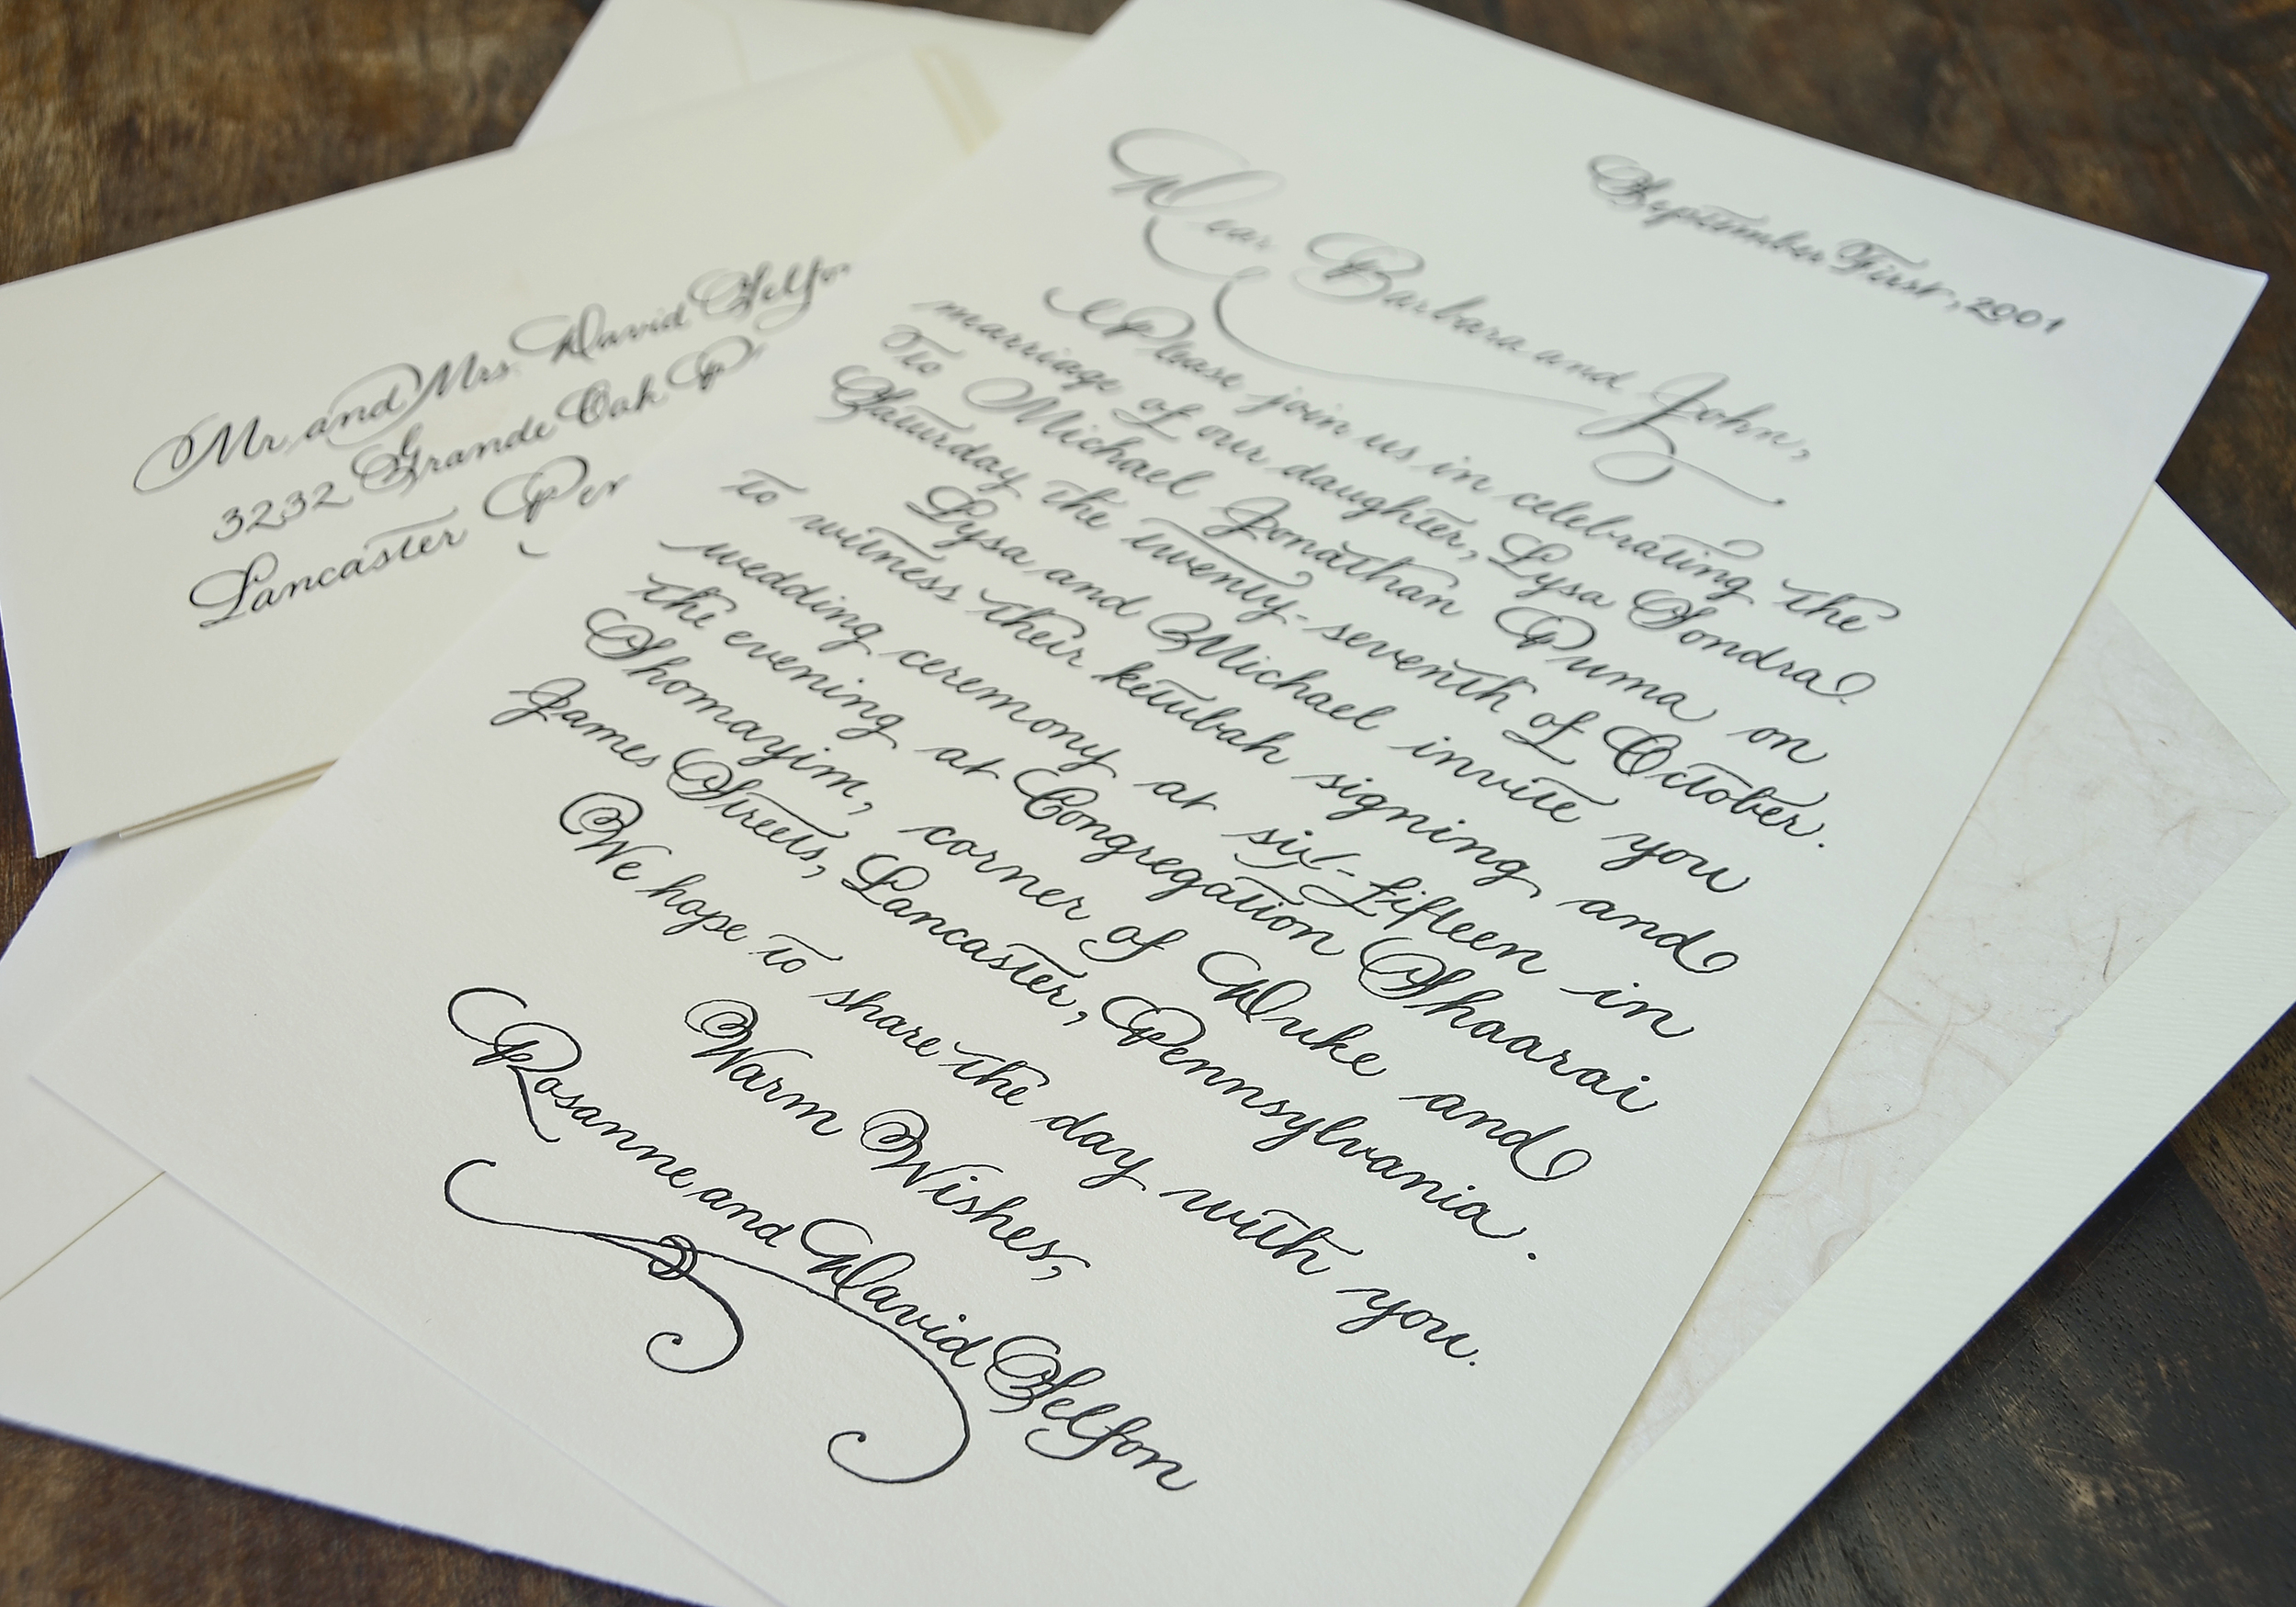 Mr. and Mrs. David Selfon
3232 Grande Oak
Lancaster
September First, 2001
Dear Barbara and John,
Please join us in celebrating the
marriage of our daughter, Lysa Sondra
To Michael Jonathan Puma on
Saturday the twenty-seventh of October.
Lysa and Michael invite you
to witness their ketubah signing and
wedding ceremony at six-fifteen in
the evening at Congregation Shaarai
Shomayim, corner of Duke and
James Streets, Lancaster, Pennsylvania.
We hope to share the day with you.
Warm Wishes,
Rosanne and David Selfon